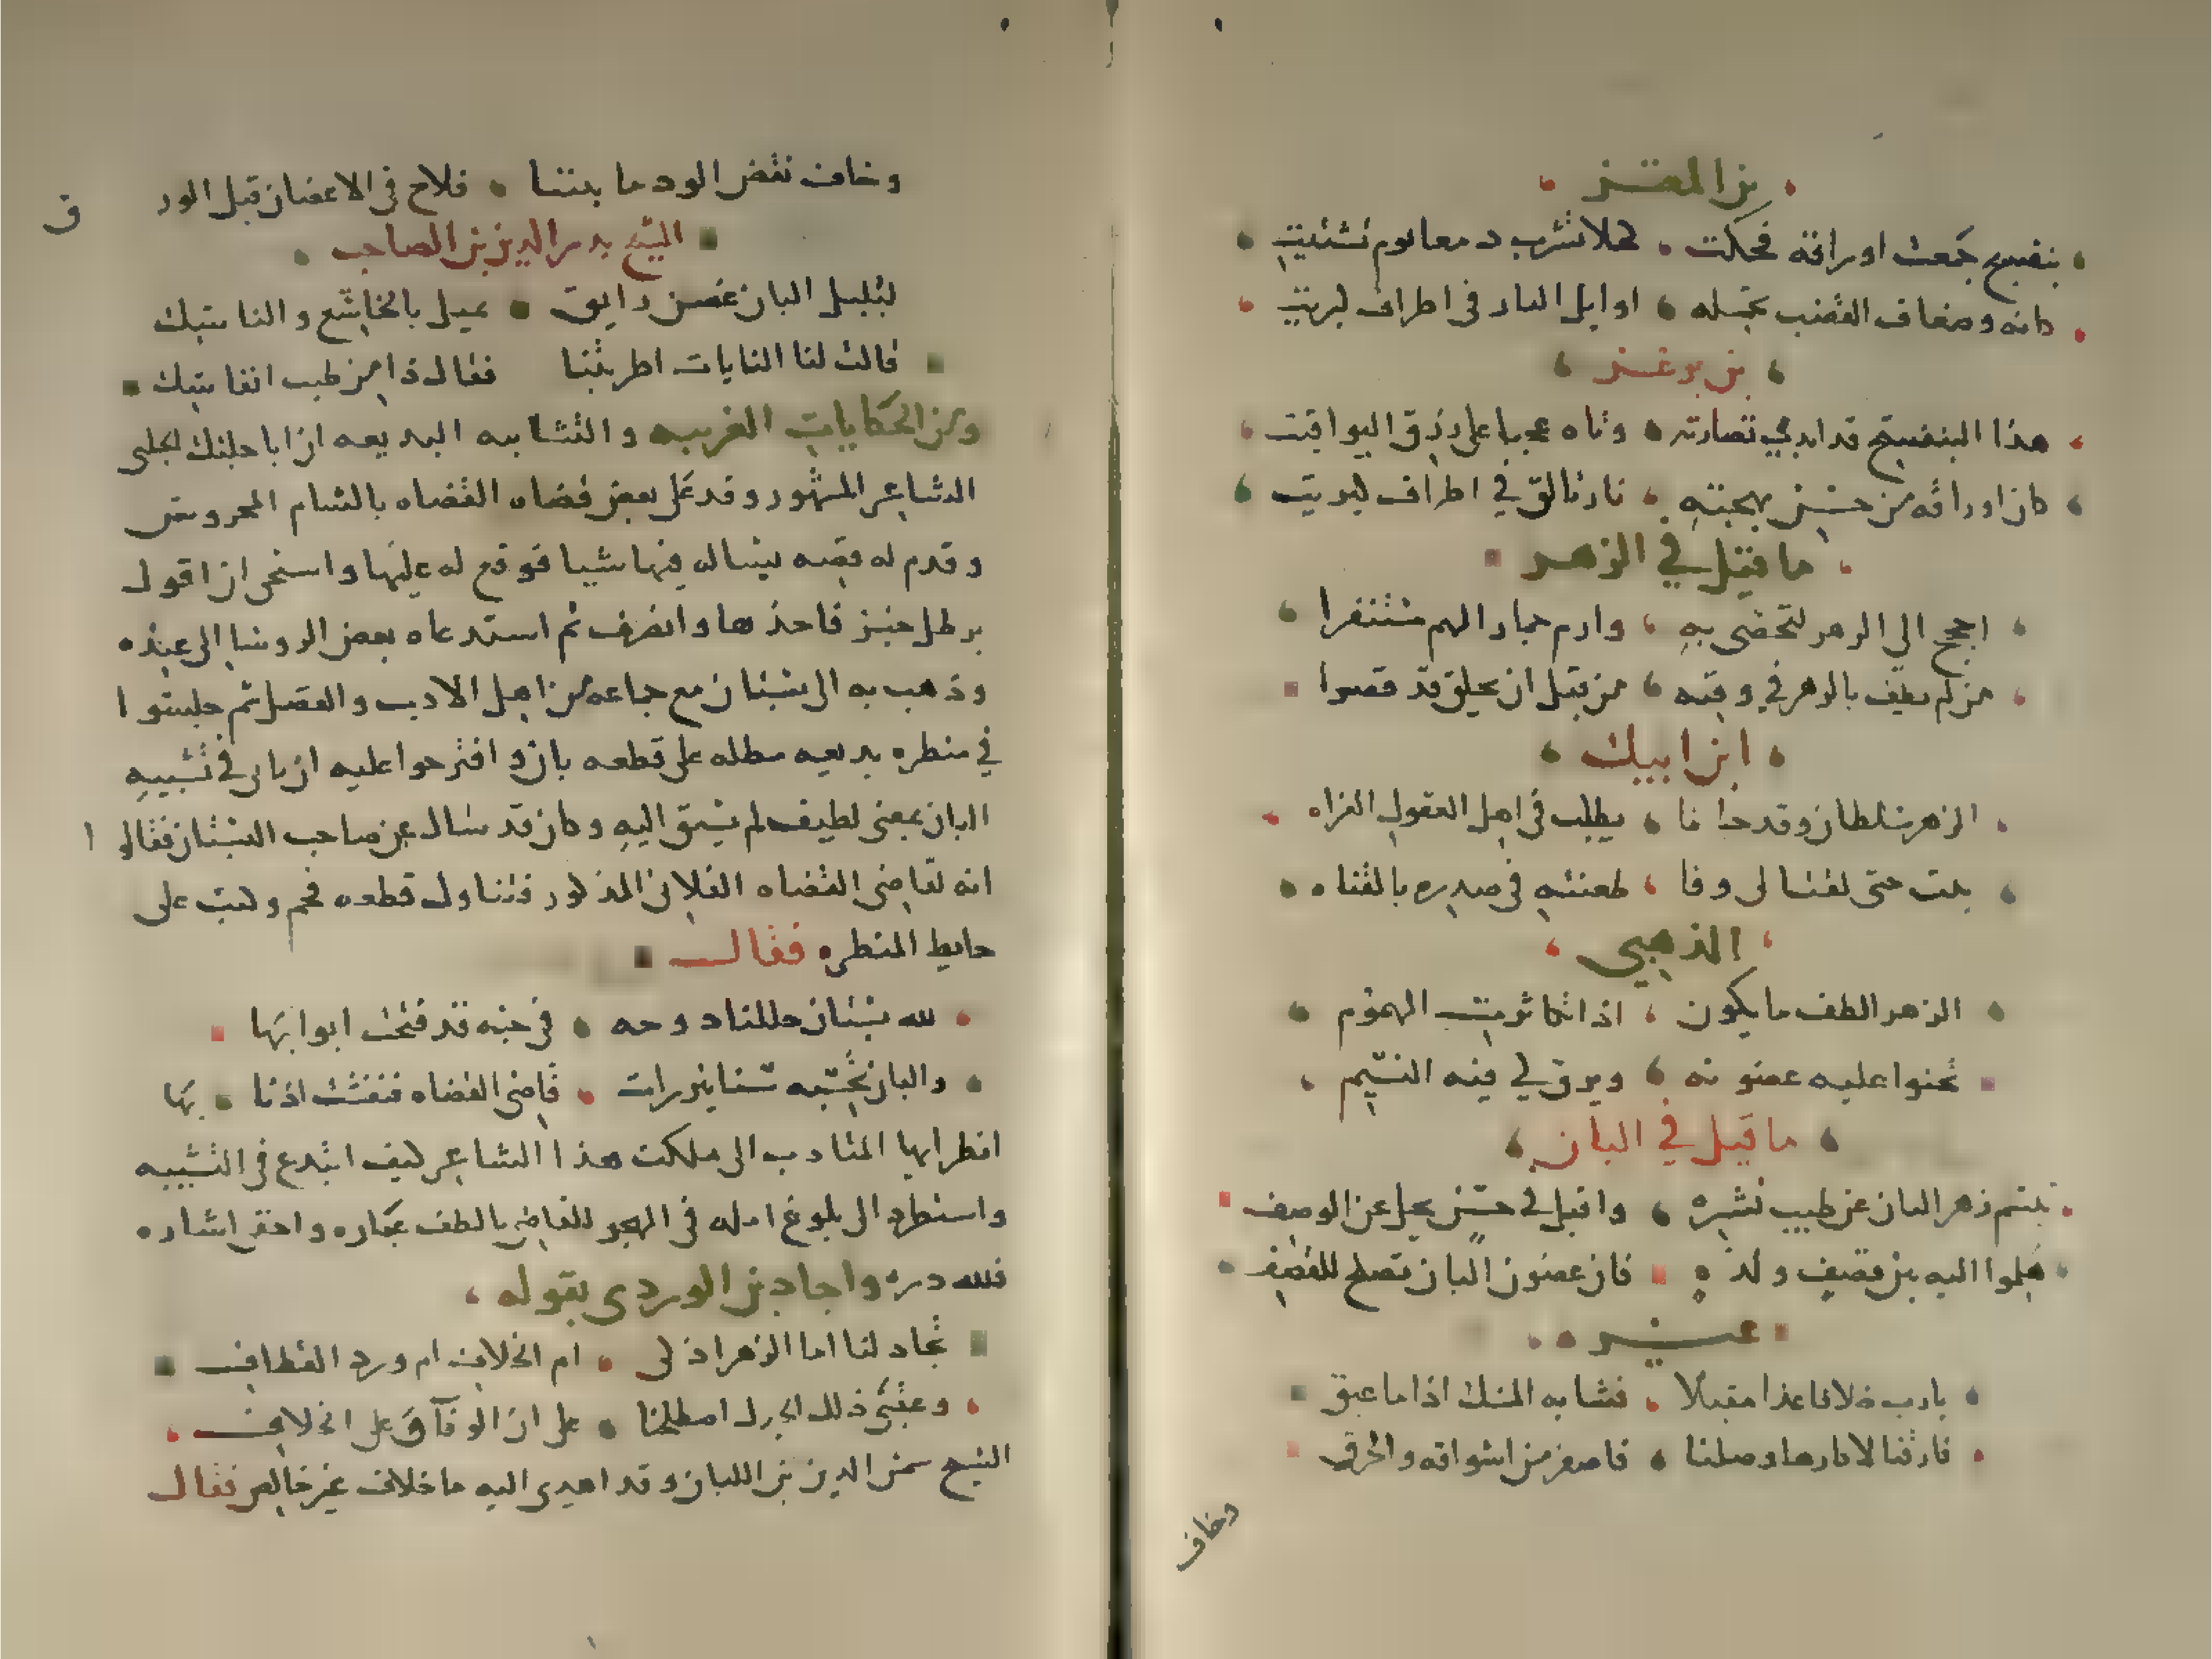 بن المعتز
بنفسج جمعت اوراقه فحكت كحلا تشرب دمعا يوم تشتيت
كانه وضعاف القضب تحمله اوايل النار في اطراف كبريت
بن برغش
هذا البنفسج قد ابدي نضارته وتاه عجبا على زرق اليواقيت
كان اوراقه من حسن بهجته نار تالق في اطراف كبريت
ما قيل في الزهر
احجج الى الزهر لتحضى به وارم جمار الهم مستنفرا
من لم يطف بالزهر في وقته من قبل ان يحلق قد قصرا
ابن ابيك
الزهر سلطان وقد جا نا يطلب في اهل العقول الغزاه
حتى لقد طعنته في صدره بالقناه
الذهبي
الزهر الطف ما يكون اذا تكاثرت الهموم
تحنوا عليه غصونه ويرق لي فيه النسيم
ما قيل في البان
تبسم زهر البان عن طيب نشره واقبل في حسن يجل عن الوصف
هلموا اليه بين قصف ولذه فان غصون البان تصلح للقصف
غيره
يارب خلافا غدا مقبلا فشابه المسك اذا ما عبق
فاصفر من اشواقه والحرق
وخاف
وخاف نقض الود ما بيننا فلاح في الاغصان قبل الورق
الشيخ بدر الدين بن الصاحب
لبلبل البان غصن رايق يميل بالخاشع والناسك
قالت لنا النايات اطربتنا فقال ذا من طيب انفاسك
ومن الحكايات الغريبه والتشابيه البديعه ان ابا جلنك الحلبي
الشاعر المشهور وقد على بعض قضاه القضاه بالشام المحروس
وقدم له قصه يساله فيها شيا فوقع له عليها واستحى ان اقول
برطل خبز فاخذها وانصرف ثم استدعاه بعض الروسا الى عنده
وذهب به الى بستان مع جماعه من اهل الادب والفضل ثم جلسوا
في منظره بديعه مطله على قطعه بان و اقترحوا عليه ان ياتي في تشبيه
البان بمعنى لطيف لم يسبق اليه وكان قد سال عن صاحب البستان فقالوا
انه لقاضي القضاه الفلاني المذكور فتناول قطعه فحم وكتب على
حايط المنظره فقال
لله بستان حللنا دوحه في جنه قد فتحت ابوابها
والبان تحسبه سنانيرا رات قاضي القضاه فنفشت اذنابها
انظر ايها المتادب الى ملكت هذا الشاعر كيف ابتدع في التشبيه
واستطرد الى بلوغ امله في الهجو للقاضي بالطف عباره واخف اشاره
فلله دره واجاد بن الوردي بقوله
تجادلنا اما الزهر اذكى ام الخلاف ام ورد القطاف
وعقبى ذلك الجدل اصطلحنا على ان الوفاق على الخلاف
الشيخ شمس الدين بن اللبان وقد اهدى اليه ما خلاف غير خالص فقال